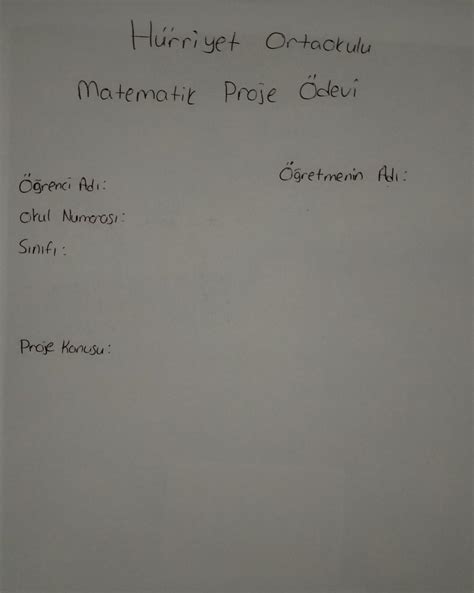 Hürriyet Ortaokulu
Matematik Proje Ödevi
Öğrenci Adı:
Öğretmenin Adı:
Okul Numarası:
Sınıfı:
Proje Konusu: